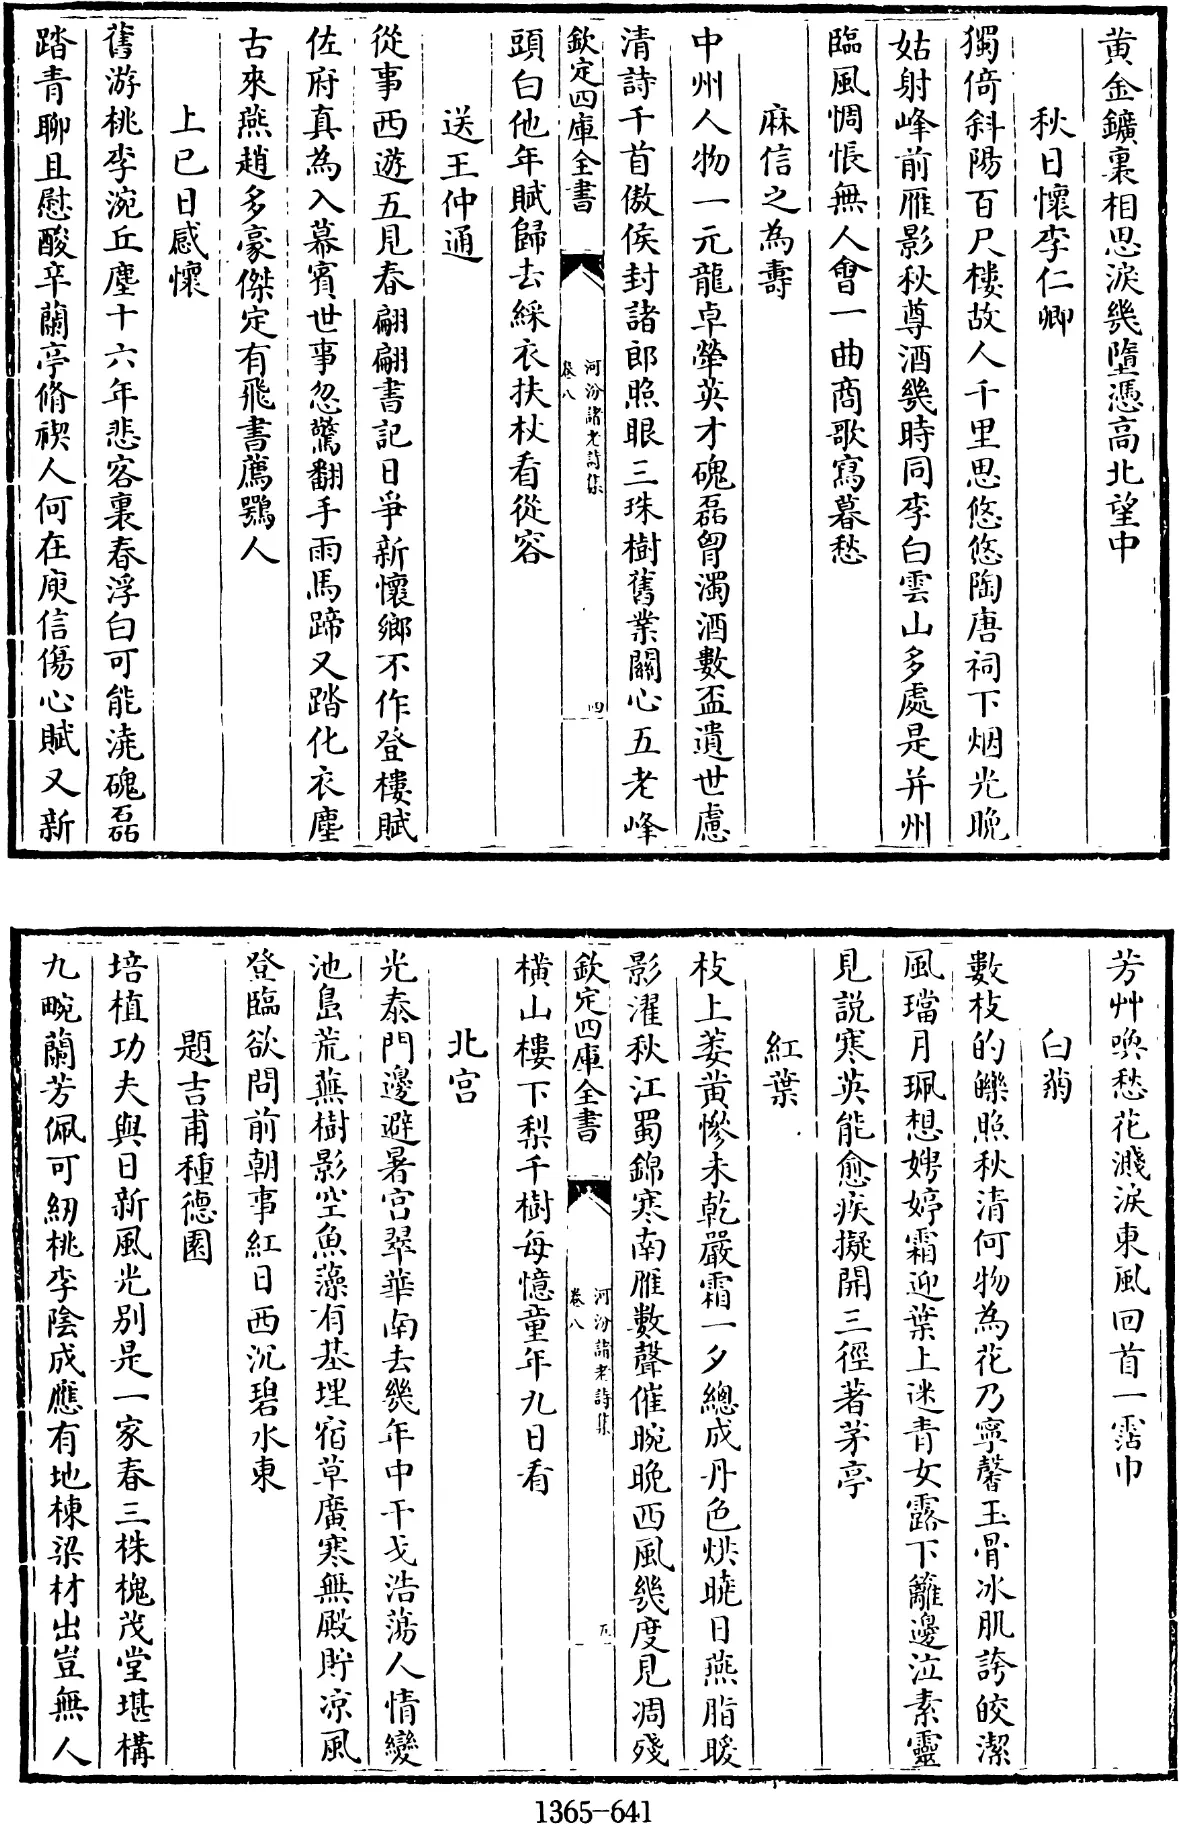 黄金鑛裏相思淚幾墮憑高北望中
秋日懷李仁卿
獨倚斜陽百尺樓故人千里思悠悠陶唐祠下烟光晚
姑射峰前雁影秋尊酒幾時同李白雲山多處是并州
臨風惆悵無人會一曲商歌寫暮愁
麻信之為壽
中州人物一元龍卓犖英才磈磊胷濁酒數盃遺世慮
清詩千首傲侯封諸郎照眼三珠樹舊業關心五老峰
欽定四庫全書
河汾諸老詩集
卷八
四
頭白他年賦歸去綵衣扶杖看從容
送王仲通
從事西遊五見春翩翩書記日爭新懷鄉不作登樓賦
佐府真為入幕賓世事忽驚翻手雨馬蹄又踏化衣塵
古來燕趙多豪傑定有飛書薦鶚人
上巳日感懷
舊游桃李涴丘塵十六年悲客裏春浮白可能澆磈磊
踏青聊且慰酸辛蘭亭脩禊人何在庾信傷心賦又新
芳艸喚愁花濺淚東風回首一霑巾
白菊
數枝的皪照秋清何物為花乃寧馨玉骨冰肌誇皎潔
風璫月珮想娉婷霜迎葉上迷青女露下籬邊泣素靈
見說寒英能愈疾擬開三徑著茅亭
紅葉
枝上萎黄慘未乾嚴霜一夕總成丹色烘曉日燕脂暖
影濯秋江蜀錦寒南雁數聲催晼晚西風幾度見凋殘
欽定四庫全書
河汾諸老詩集
卷八
五
橫山樓下梨千樹每憶童年九日看
北宫
光泰門邊避暑宫翠華南去幾年中干戈浩蕩人情變
池島荒蕪樹影空魚藻有基埋宿草廣寒無殿貯凉風
登臨欲問前朝事紅日西沉碧水東
題吉甫種德園
培植功夫與日新風光別是一家春三株槐茂堂堪構
九畹蘭芳佩可紉桃李陰成應有地棟梁材出豈無人
1365-641